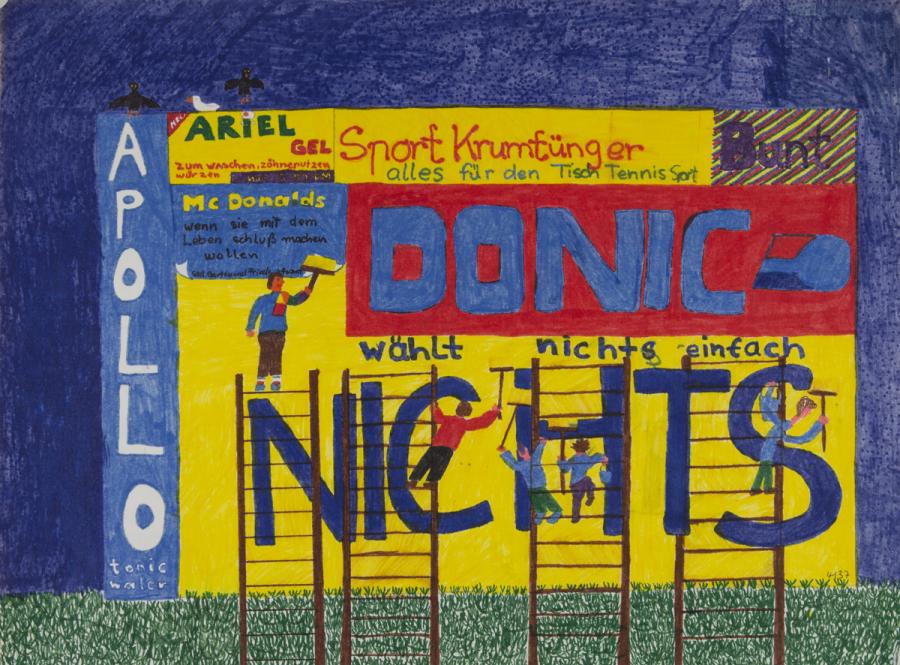 APOLLO
tonic
water
NEU
ARIEL
GEL
zum waschen, zöhneputzen
würzen
Sport Krumtünger
alles für den Tisch Tennis Sport
Bunt
Mc Donalds
wenn sie mit dem
Leben schluß machen
wollen
DONIC
wählt nichts einfach
NICHTS